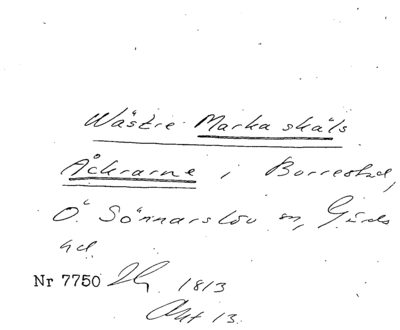 Wästre Marka skäls
Åckrarne i Borrestad,
Ö. Sönnarslöv sn, Gärds
hd.
Nr 7750 1813
Akt 13.